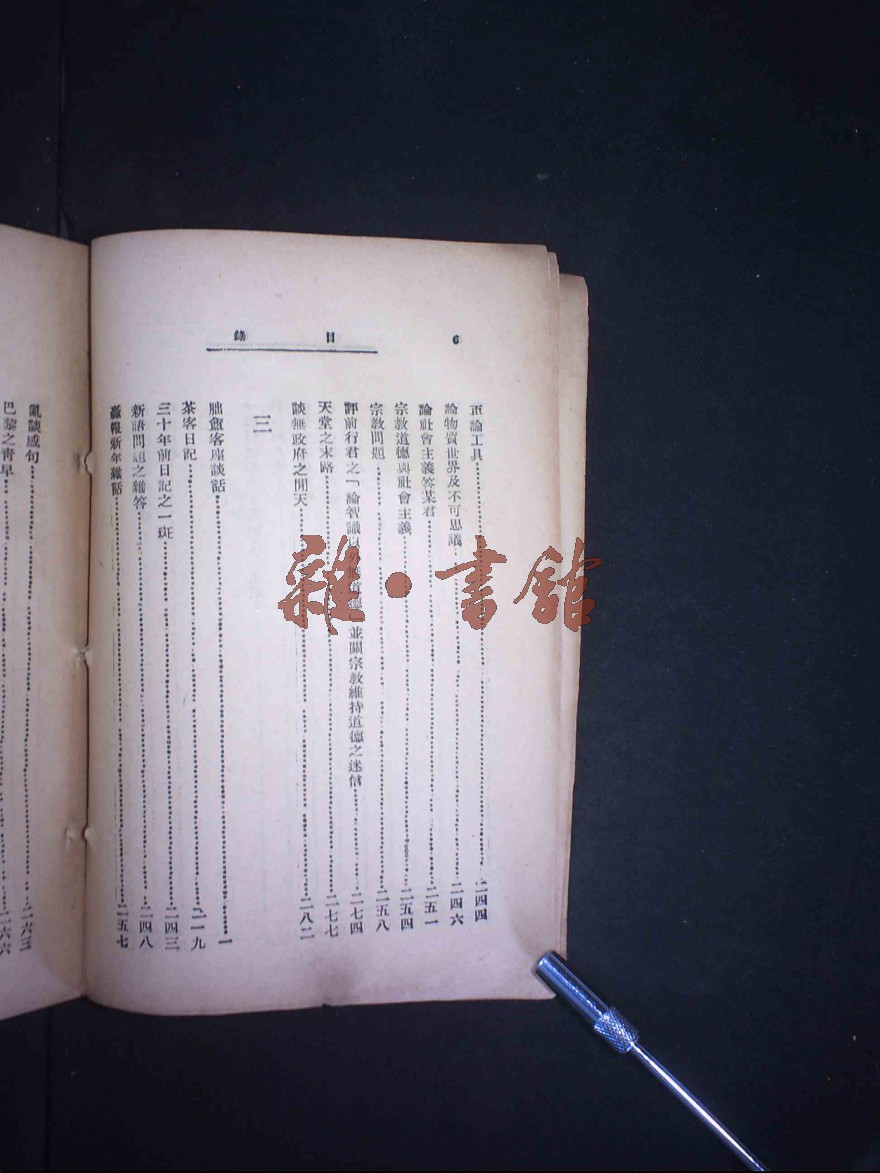 6 目錄
再論工具 二四四
論物質世界及不可思議 二四六
論社會主義答某君 二五一
宗教道德與社會主義 二五四
宗教問題 二五八
評前行君之「論智識以外無道德」並闢宗教維持道德之迷信 二七四
天堂之末路 二七七
談無政府之閒天 二八二
三
朏盦客座談話 一
茶客日記 一一九
三十年前日記之一斑 一四三
新語問題之雜答 一四八
報新年雜話 一五七
亂談感句 一六三
巴黎之青早 一六六
雜·書館